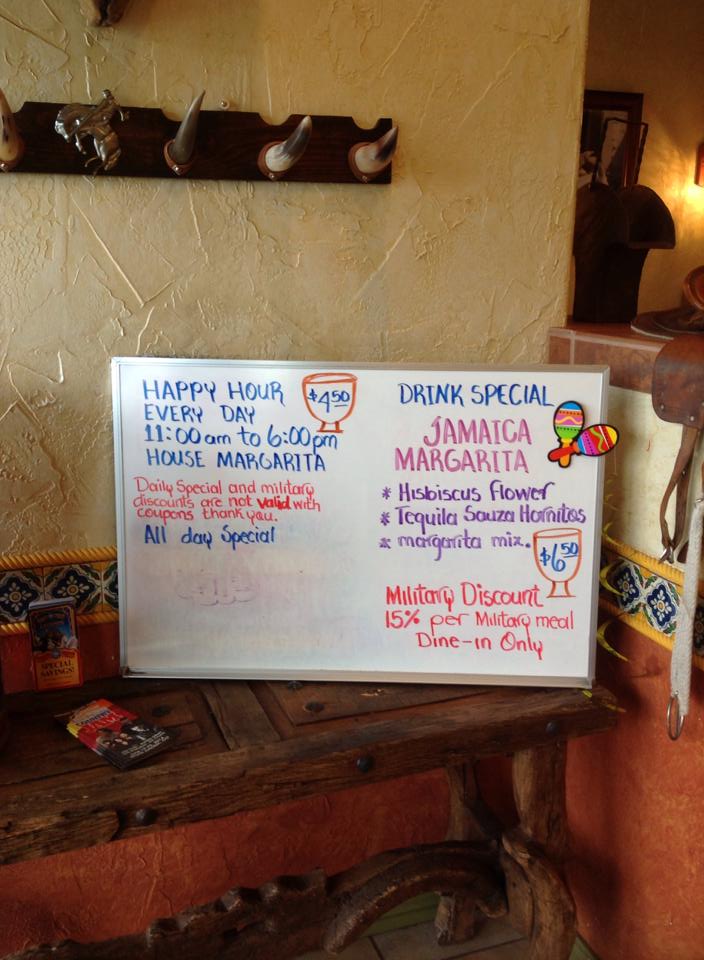 HAPPY HOUR
EVERY DAY
11:00 am to 6:00 pm
HOUSE MARGARITA
$4.50
Daily Special and military
discounts are not valid with
coupons thank you.
All day Special
DRINK SPECIAL
JAMAICA
MARGARITA
* Hisbiscus flower
* Tequila Sauza Hornitos
* margarita mix.
$6.50
Military Discount
15% per Military meal
Dine-in Only
SPECIAL
SAVINGS!